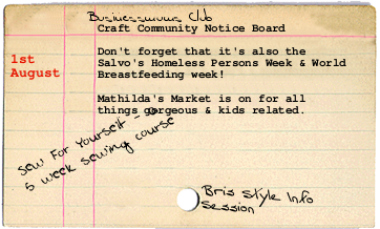 Businessmums Club
Craft Community Notice Board
1st
August
Don't forget that it's also the
Salvo's Homeless Persons Week & World
Breastfeeding week!
Mathilda's Market is on for all
things gorgeous & kids related.
Sew For Yourself -
5 week sewing course
Bris Style Info
Session